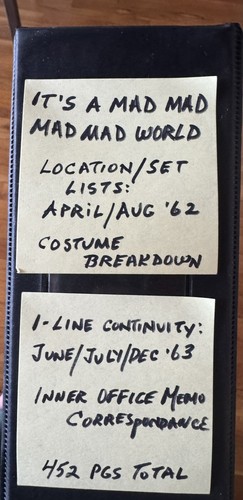 IT'S A MAD MAD
MAD MAD WORLD
LOCATION/SET
LISTS:
APRIL/AUG '62
COSTUME
BREAKDOWN
1-LINE CONTINUITY:
JUNE/JULY/DEC '63
INNER OFFICE MEMO
CORRESPONDANCE
452 PGS TOTAL